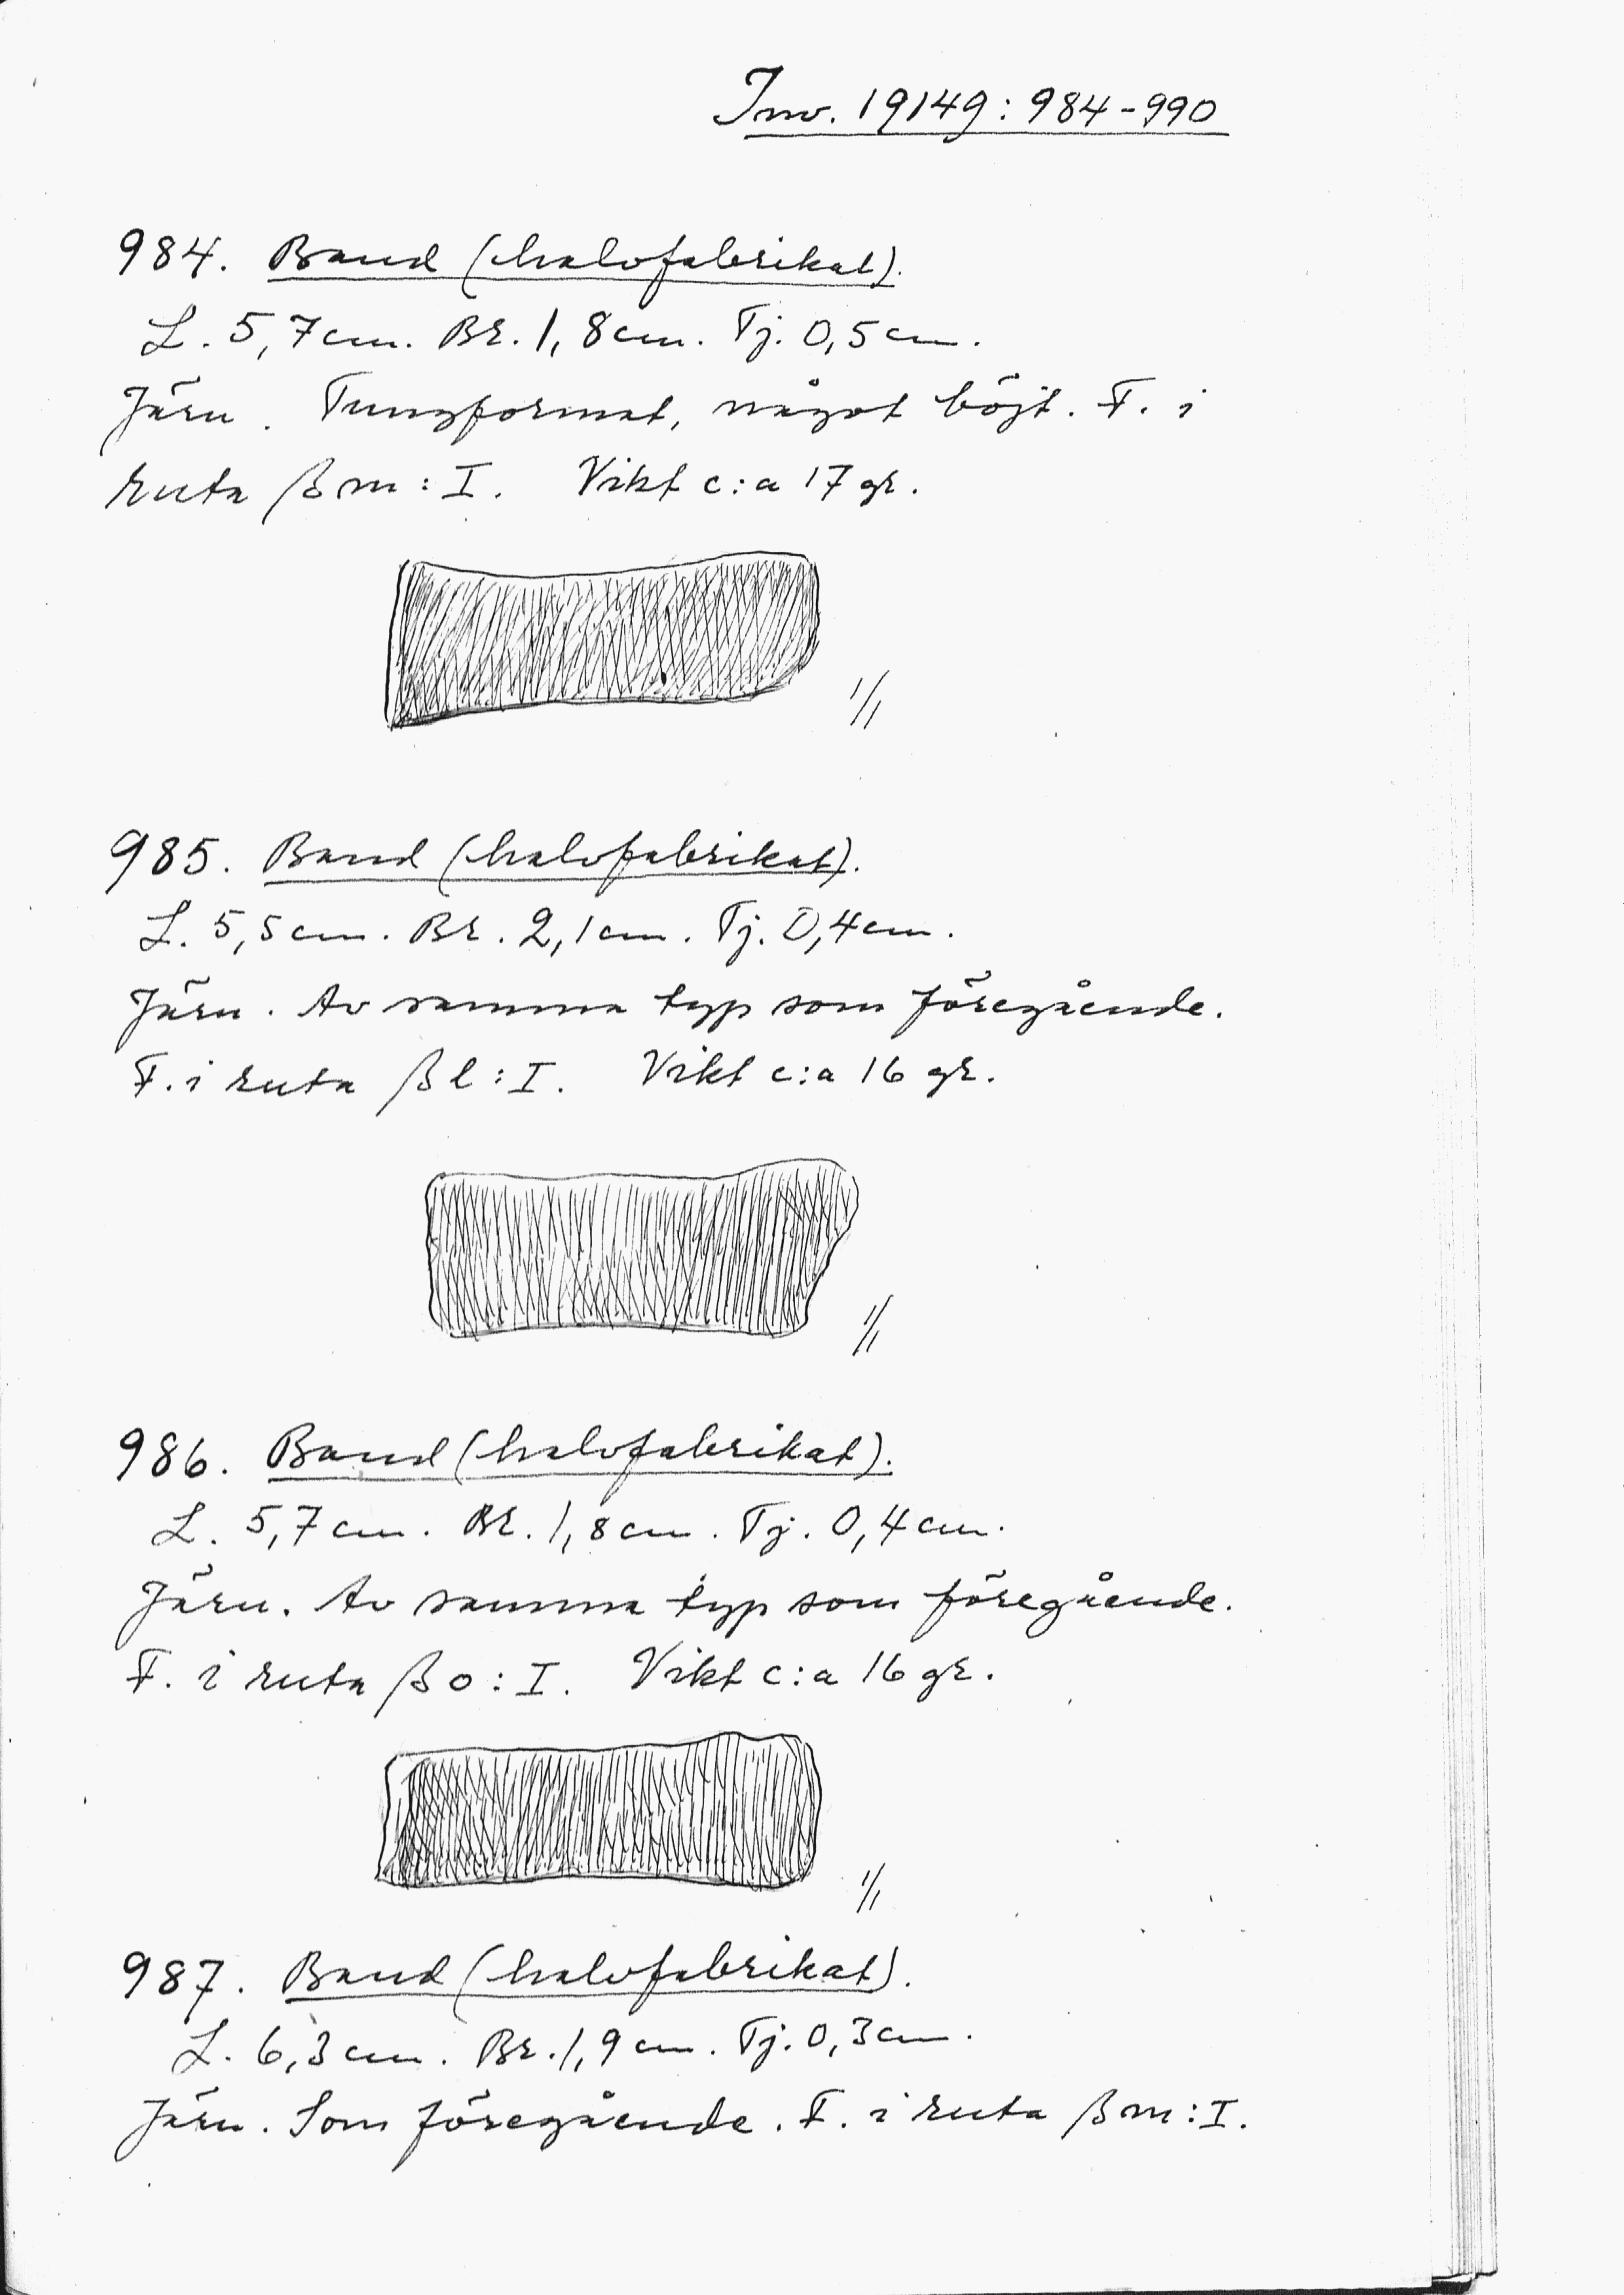 Inv. 19149: 984-990
984. Band (halvfabrikat).
L. 5,7cm. Br. 1,8cm. Tj. 0,5cm.
Järn. Tungformat, något böjt. F. i
ruta βm: I. Vikt c:a 17 gr.
1/1
985. Band (halvfabrikat).
L. 5,5cm. Br. 2,1cm. Tj. 0,4cm.
Järn. Av samma typ som föregående.
F. i ruta βl: I. Vikt c:a 16 gr.
1/1
986. Band (halvfabrikat).
L. 5,7cm. Br. 1,8cm. Tj. 0,4cm.
Järn. Av samma typ som föregående.
F. i ruta βo: I. Vikt c:a 16 gr.
1/1
987. Band (halvfabrikat).
L. 6,3cm. Br. 1,9cm. Tj. 0,3cm.
Järn. Som föregående. F. i ruta βm: I.